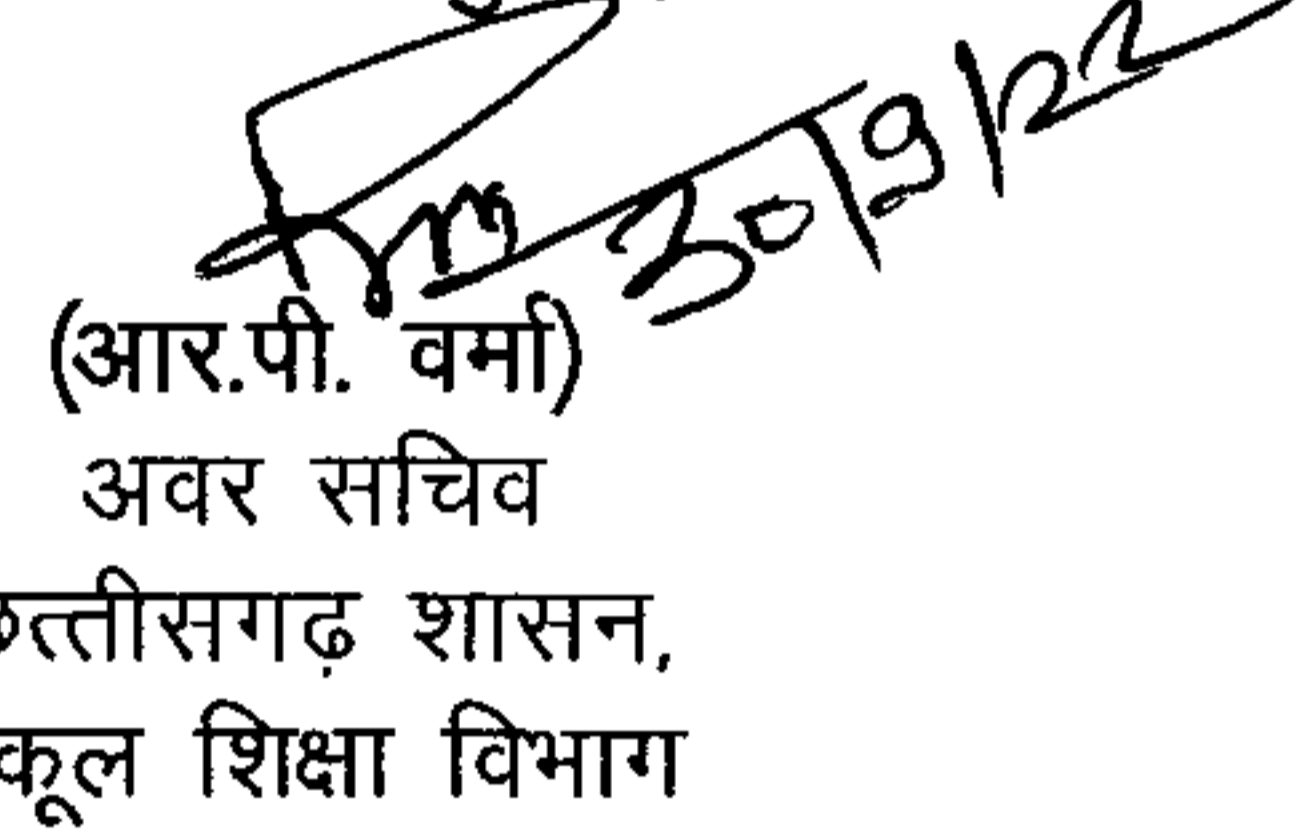 30/9/22
(आर.पी. वर्मा)
अवर सचिव
छत्तीसगढ़ शासन,
स्कूल शिक्षा विभाग